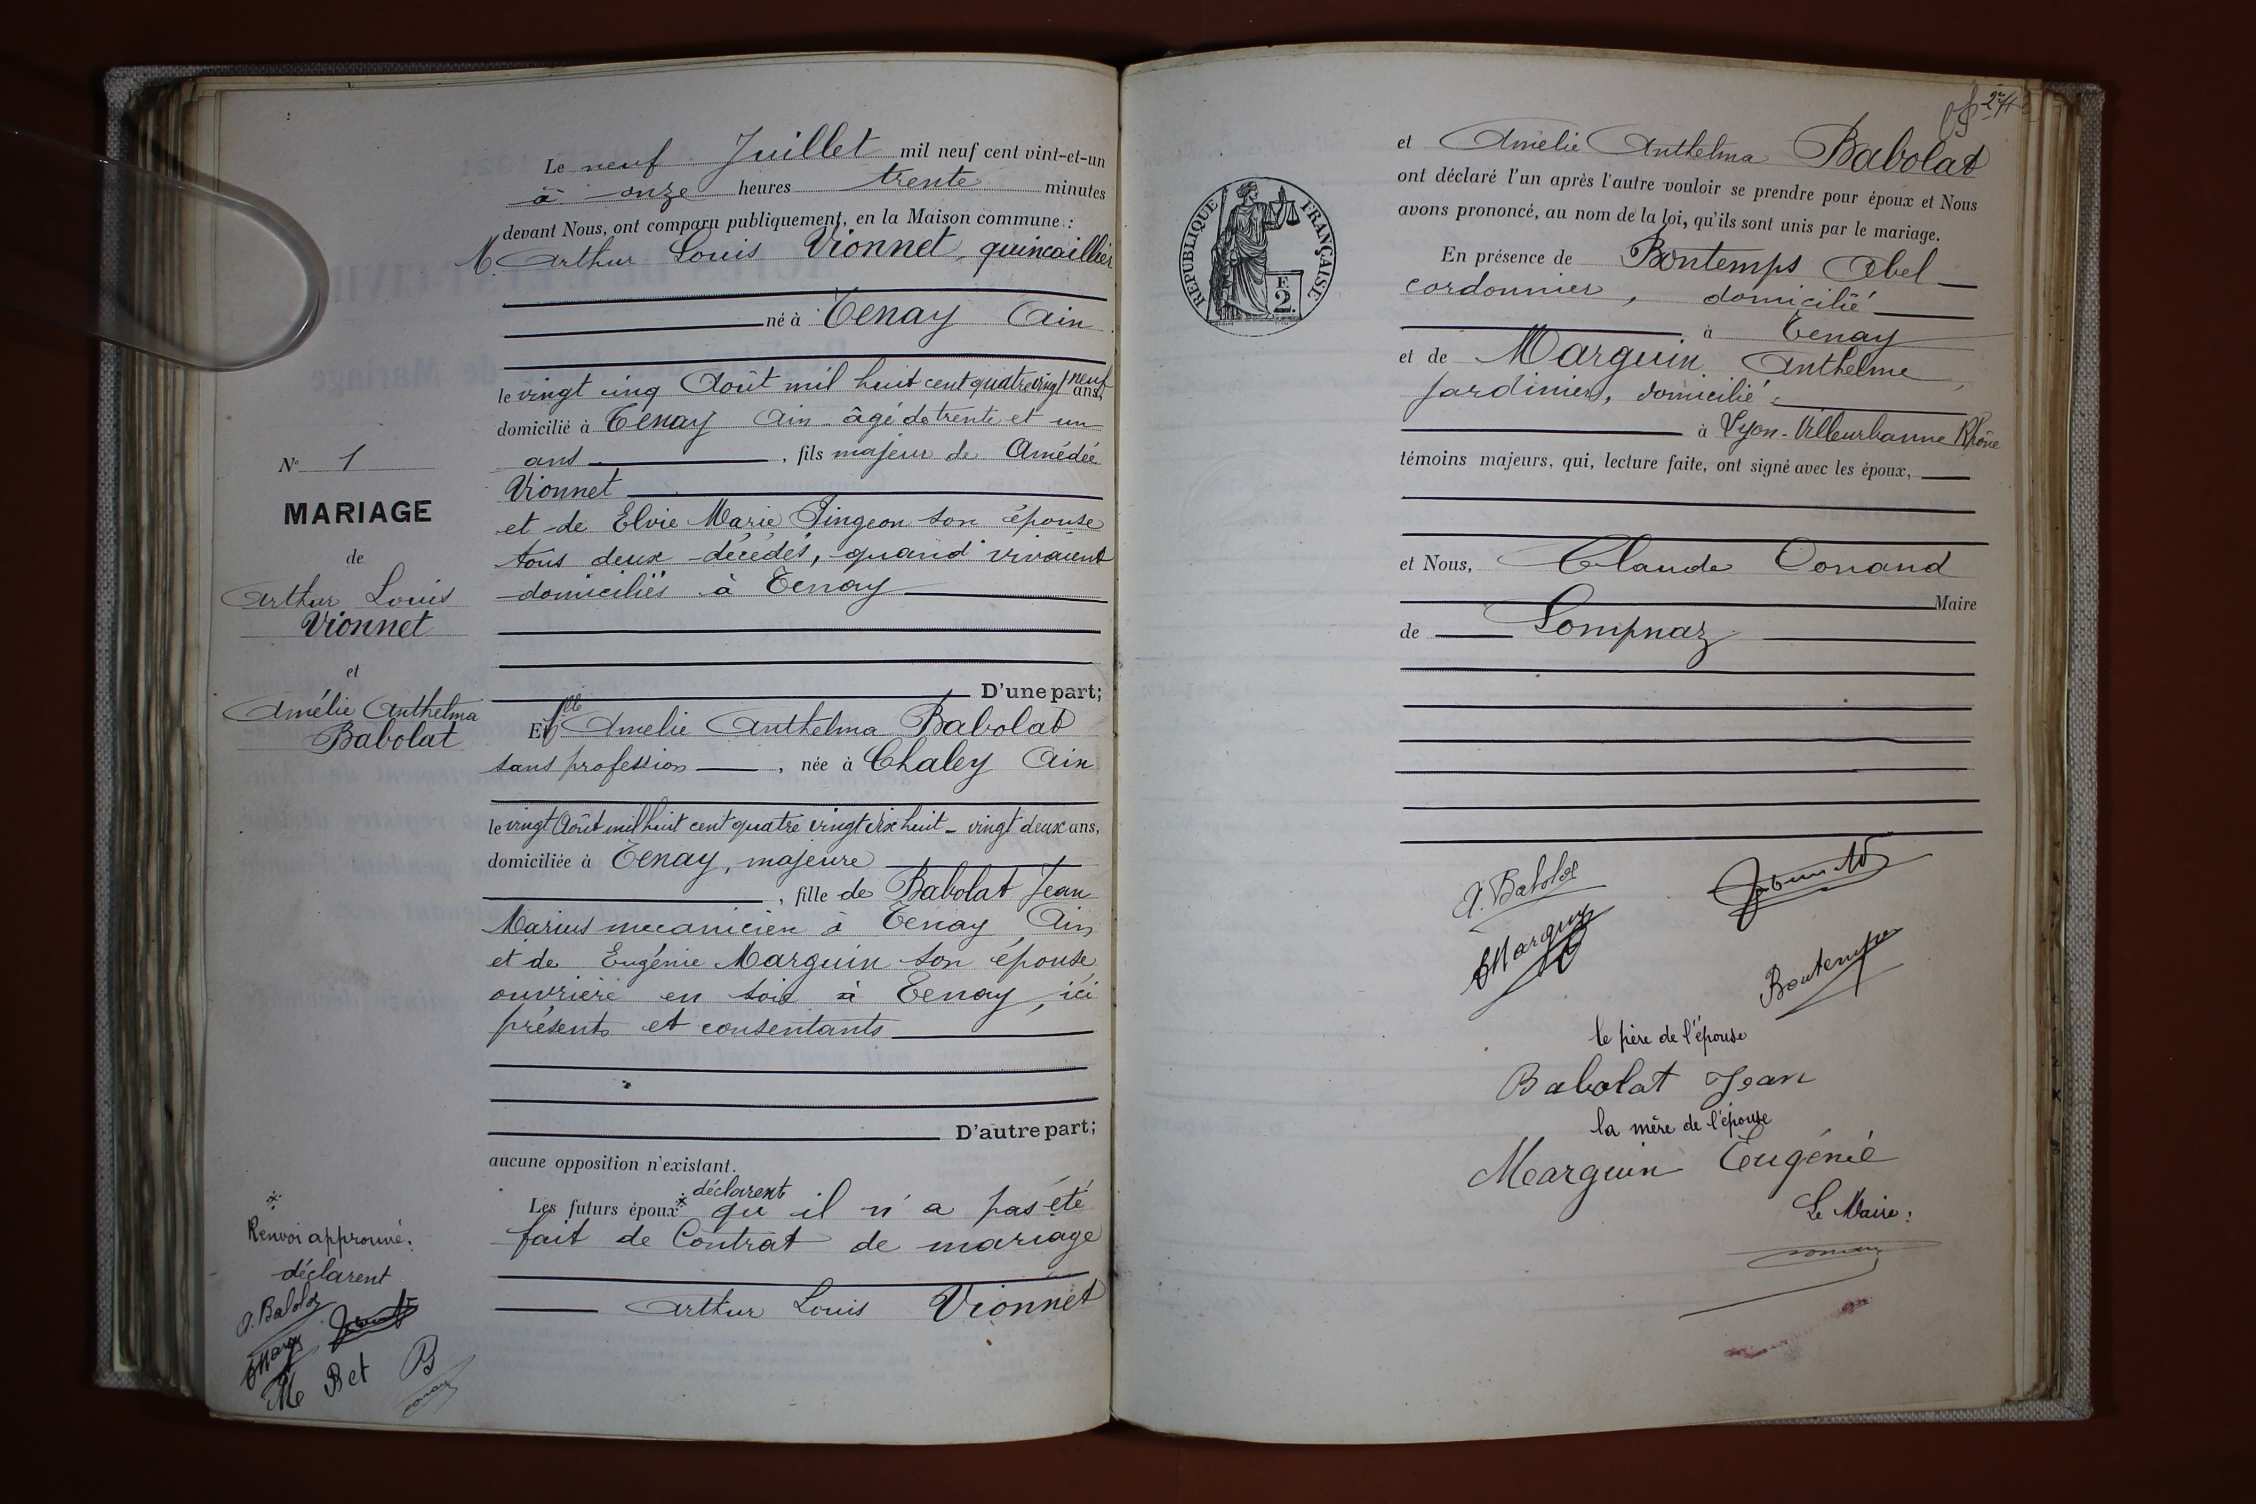 Le neuf Juillet mil neuf cent vint-et-un
à onze heures trente minutes
devant Nous, ont comparu publiquement, en la Maison commune :
M. Arthur Louis Vionnet, quincaillier
né à Tenay Ain
le vingt cinq Août mil huit cent quatre vingt neuf ans,
domicilié à Tenay Ain âgé de trente et un
ans, fils majeur de Amédée
Vionnet
et de Elvie Marie Pingeon son épouse
tous deux décédés, quand vivaient
domiciliés à Tenay
D'une part;
Et Mlle Amelie Anthelma Babolat
sans profession, née à Chaley Ain
le vingt Août mil huit cent quatre vingt dix huit - vingt deux ans,
domiciliée à Tenay, majeure
, fille de Babolat Jean
Marius mecanicien à Tenay Ain
et de Eugénie Marguin son épouse
ouvrière en soie à Tenay, ici
présents et consentants
D'autre part;
aucune opposition n'existant.
déclarent
Les futurs époux * qu il n'a pas été
fait de Contrat de mariage
Arthur Louis Vionnet
No 1
MARIAGE
de
Arthur Louis
Vionnet
et
Amélie Anthelma
Babolat
*
Renvoi approuvé:
déclarent
A. Babolat
Me Bet B
et Amélie Anthelma Babolat
ont déclaré l'un après l'autre vouloir se prendre pour époux et Nous
avons prononcé, au nom de la loi, qu'ils sont unis par le mariage.
RÉPUBLIQUE FRANÇAISE
E
2.
En présence de Bontemps Abel
cordonnier, domicilié
à Tenay
et de Marguin Anthelme,
Jardinier, domicilié
à Lyon-Villeurbanne Rhône
témoins majeurs, qui, lecture faite, ont signé avec les époux,
et Nous, Claude Conand
Maire
de Lompnaz
A. Babolat
Marguin
Bontemps
le père de l'épouse
Babolat Jean
la mère de l'épouse
Marguin Eugénie
Le Maire: